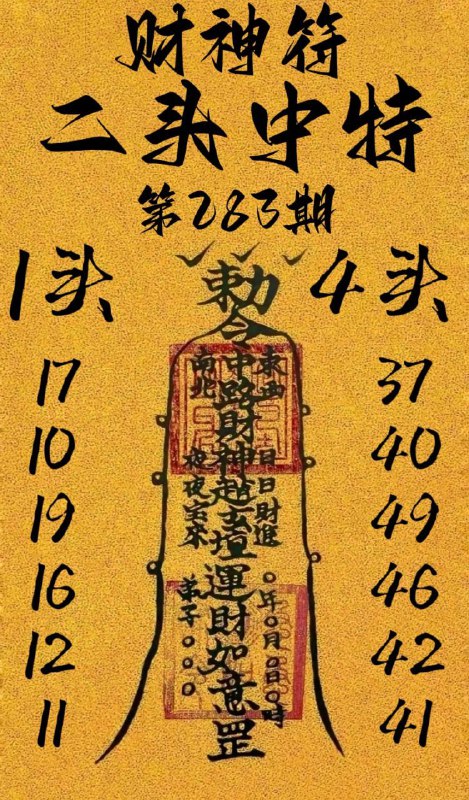 财神符
二头中特
第283期
1头
4头
17
10
19
16
12
11
37
40
49
46
42
41
勅令
東西
中路財神趙玄壇運財如意罡
南北
日日財進
夜夜宝來
○年○月○日○時
弟子○○○